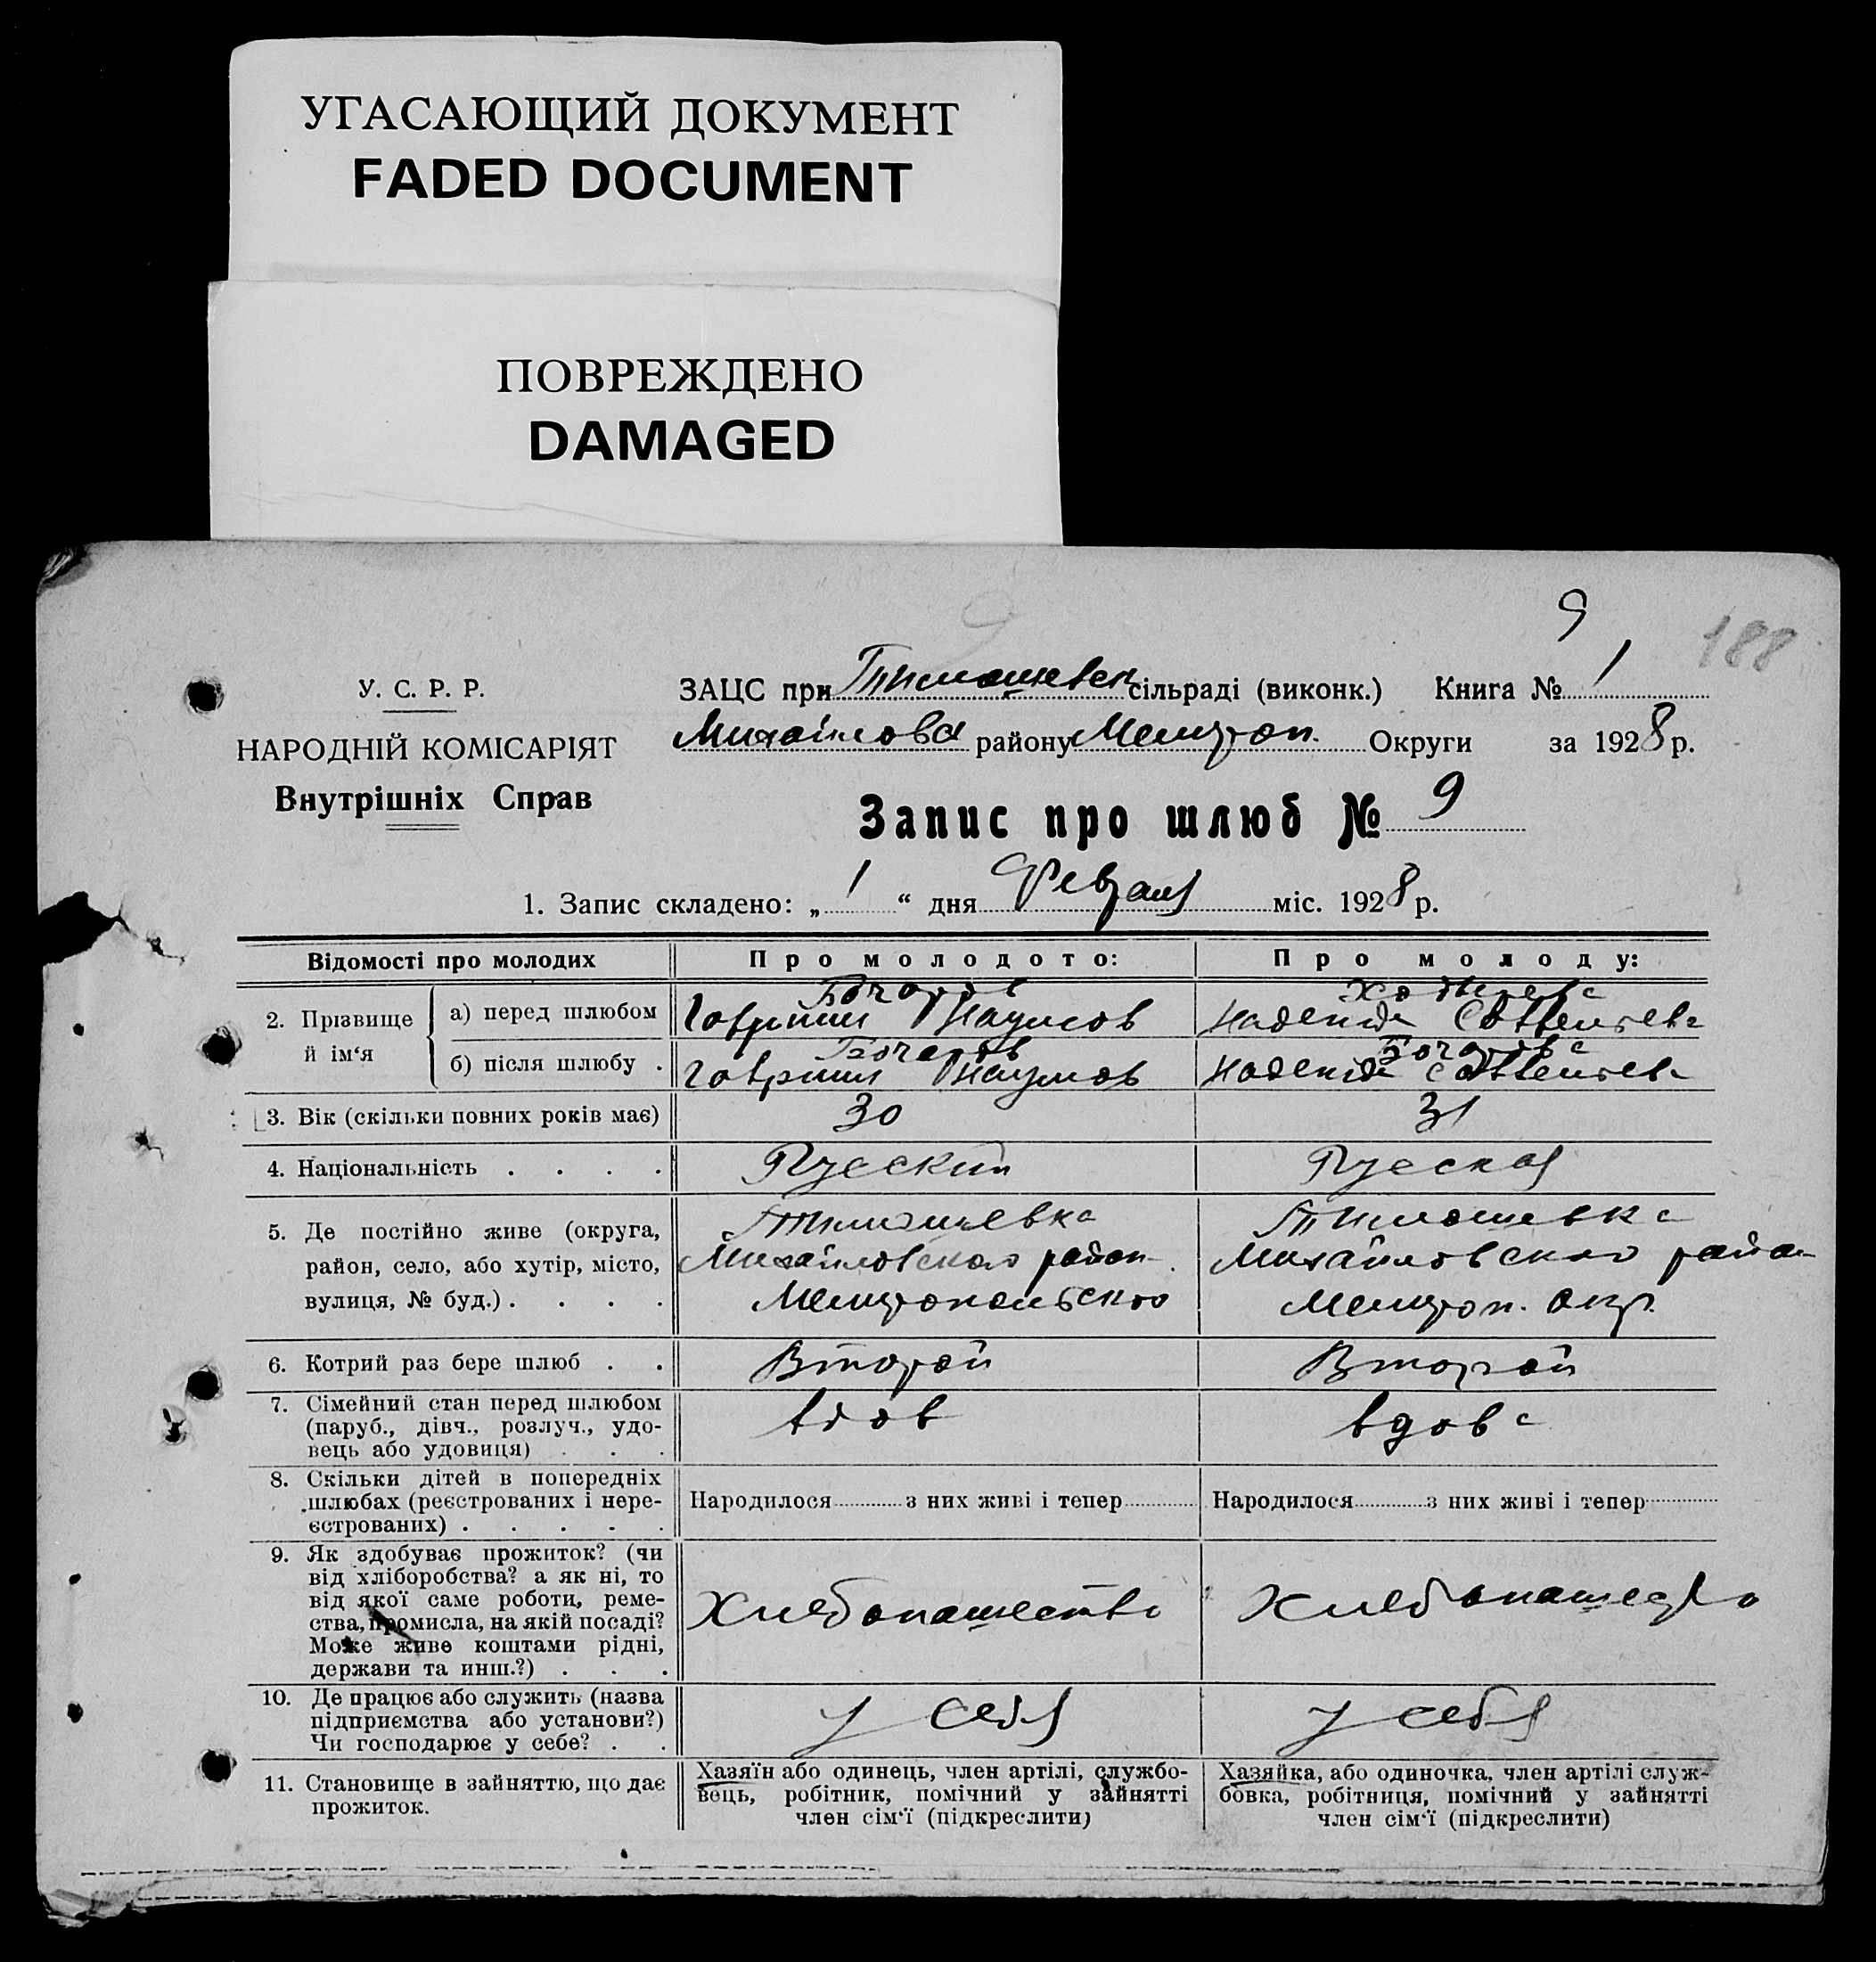 УГАСАЮЩИЙ ДОКУМЕНТ
FADED DOCUMENT
ПОВРЕЖДЕНО
DAMAGED
9
188
У. С. Р. Р.
НАРОДНІЙ КОМІСАРІЯТ
Внутрішніх Справ
ЗАЦС при Тимошевск сільраді (виконк.) Книга № 1
Михайловск району Мелитоп. Округи за 1928 р.
Запис про шлюб № 9
1. Запис складено: „ 1 “ дня Февраля міс. 1928 р.
Відомості про молодих
Про молодого:
Про молоду:
2. Прізвище й ім‘я
а) перед шлюбом
Бочаров
Гавриил Наумов
Надежда
б) після шлюбу .
Бочаров
Гавриил Наумов
Бочарова
Надежда
3. Вік (скільки повних років має)
30
31
4. Національність . . . .
Русский
Русская
5. Де постійно живе (округа,
район, село, або хутір, місто,
вулиця, № буд.) . . . .
Тимошевка
Михайловского район.
Мелитопольского
Тимошевка
Михайловского район
Мелитоп. окр.
6. Котрий раз бере шлюб . .
Второй
Второй
7. Сімейний стан перед шлюбом
(паруб., дівч., розлуч., удо-
вець або удовиця) . . .
вдов
вдова
8. Скільки дітей в попередніх
шлюбах (реєстрованих і нере-
єстрованих) . . . . .
Народилося ........ з них живі і тепер ........
Народилося ........ з них живі і тепер ........
9. Як здобуває прожиток? (чи
від хліборобства? а як ні, то
від якої саме роботи, реме-
ства, промисла, на якій посаді?
Може живе коштами рідні,
держави та инш.?) . . .
Хлебопашество
Хлебопашество
10. Де працює або служить (назва
підприємства або установи?)
Чи господарює у себе? . .
у себя
у себя
11. Становище в зайняттю, що дає
прожиток.
Хазяїн або одинець, член артілі, службо-
вець, робітник, помічний у зайнятті
член сім‘ї (підкреслити)
Хазяйка, або одиночка, член артілі служ-
бовка, робітниця, помічний у зайнятті
член сім‘ї (підкреслити)